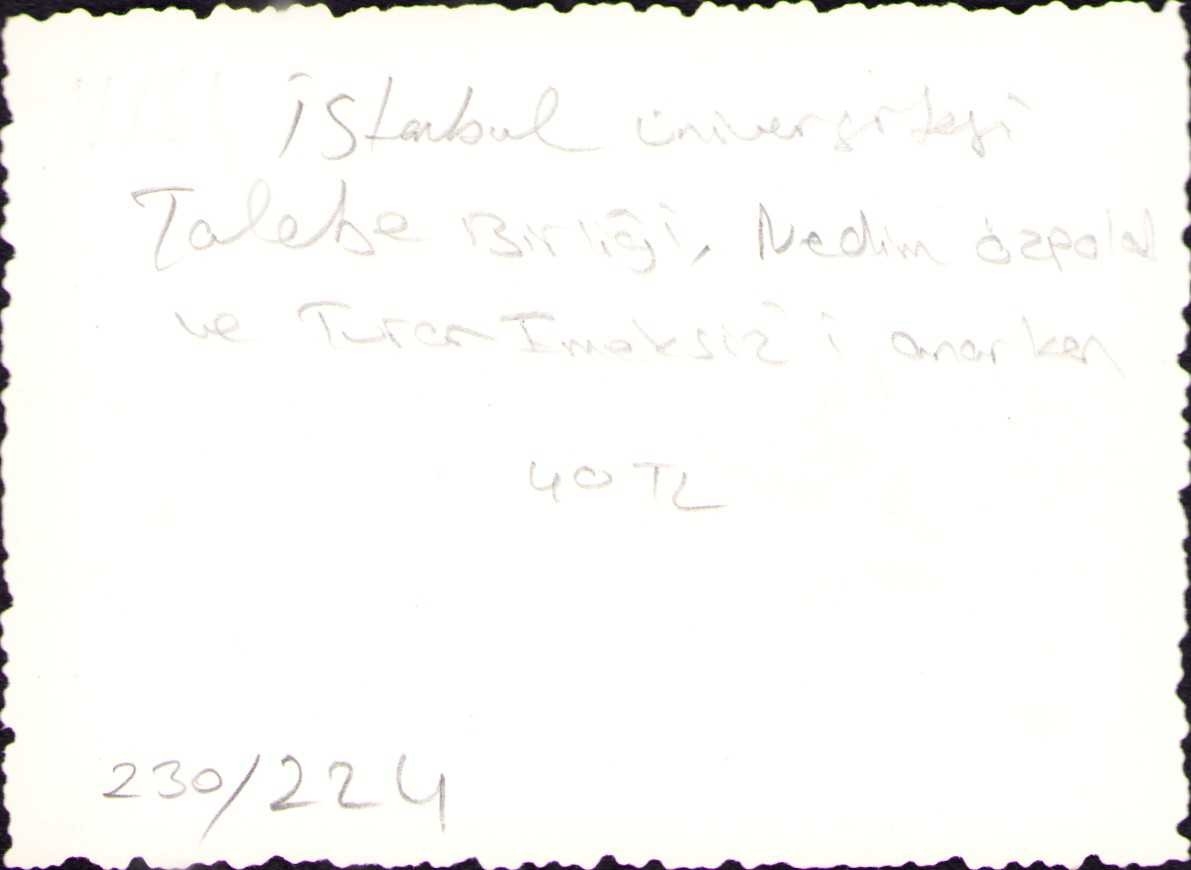 İstanbul üniversitesi
Talebe Birliği, Nedim özpolat
ve Turan Imeksiz'i anarken
40 TL
230/224